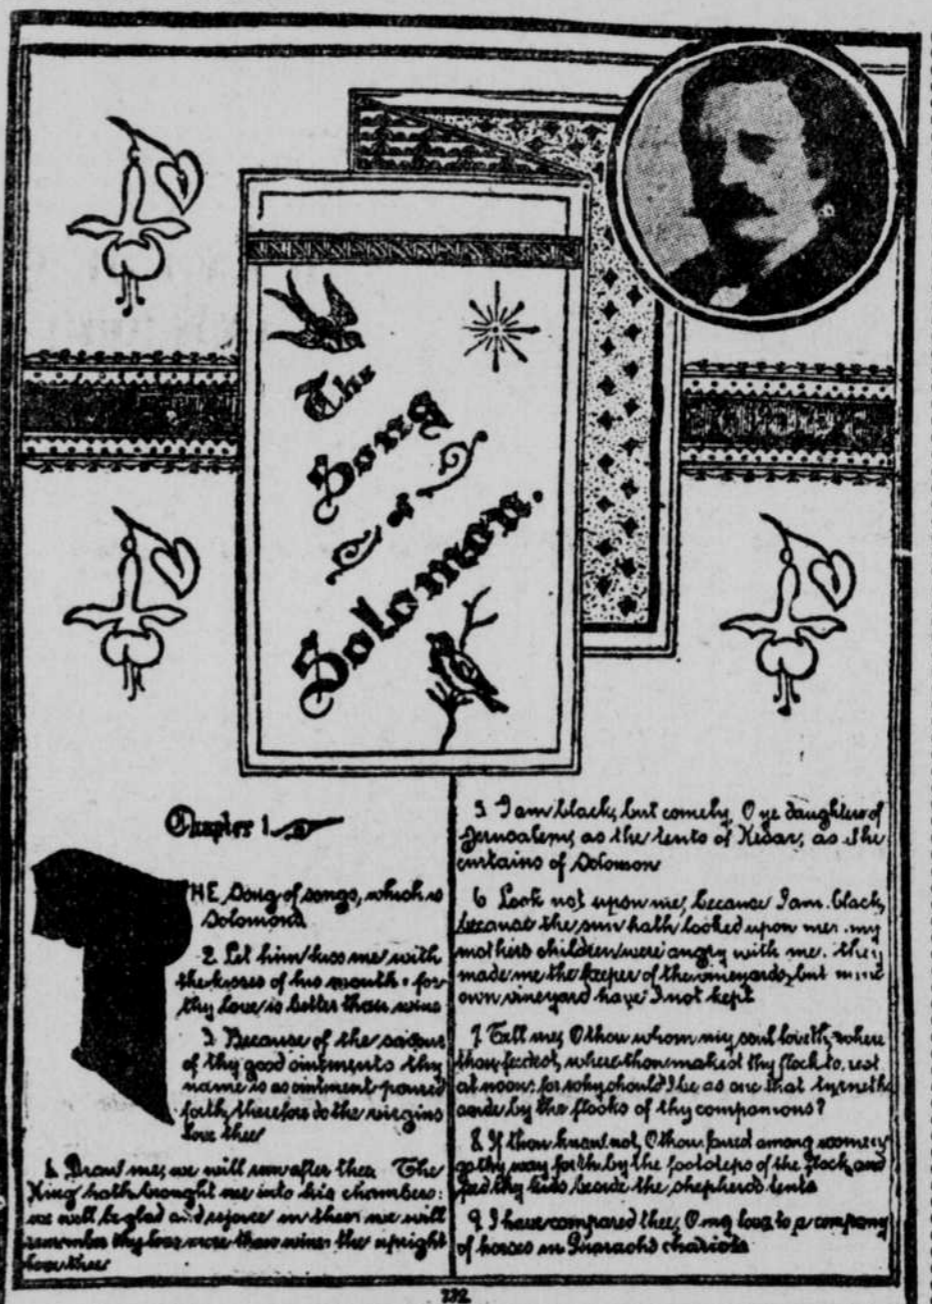 The
Song
of
Solomon.
Chapter 1.
THE Song of songs, which is
Solomons.
2. Let him kiss me with
the kisses of his mouth: for
thy love is better than wine
3 Because of the savour
of thy good ointments thy
name is as ointment poured
forth, therefore do the virgins
love thee
4. Draw me, we will run after thee. The
King hath brought me into his chambers:
we will be glad and rejoice in thee: we will
remember thy love more than wine: the upright
love thee
5. I am black, but comely, O ye daughters of
Jerusalem, as the tents of Kedar, as the
curtains of Solomon
6 Look not upon me, because I am black,
because the sun hath looked upon me: my
mothers children were angry with me. they
made me the keeper of the vineyards, but mine
own vineyard have I not kept
7. Tell me, O thou whom my soul loveth, where
thou feedest, where thou makest thy flock to rest
at noon: for why should I be as one that turneth
aside by the flocks of thy companions?
8. If thou know not, O thou fairest among women
go thy way forth by the footsteps of the flock, and
feed thy kids beside the shepherds tents
9. I have compared thee, O my love to a company
of horses in Pharaohs chariots